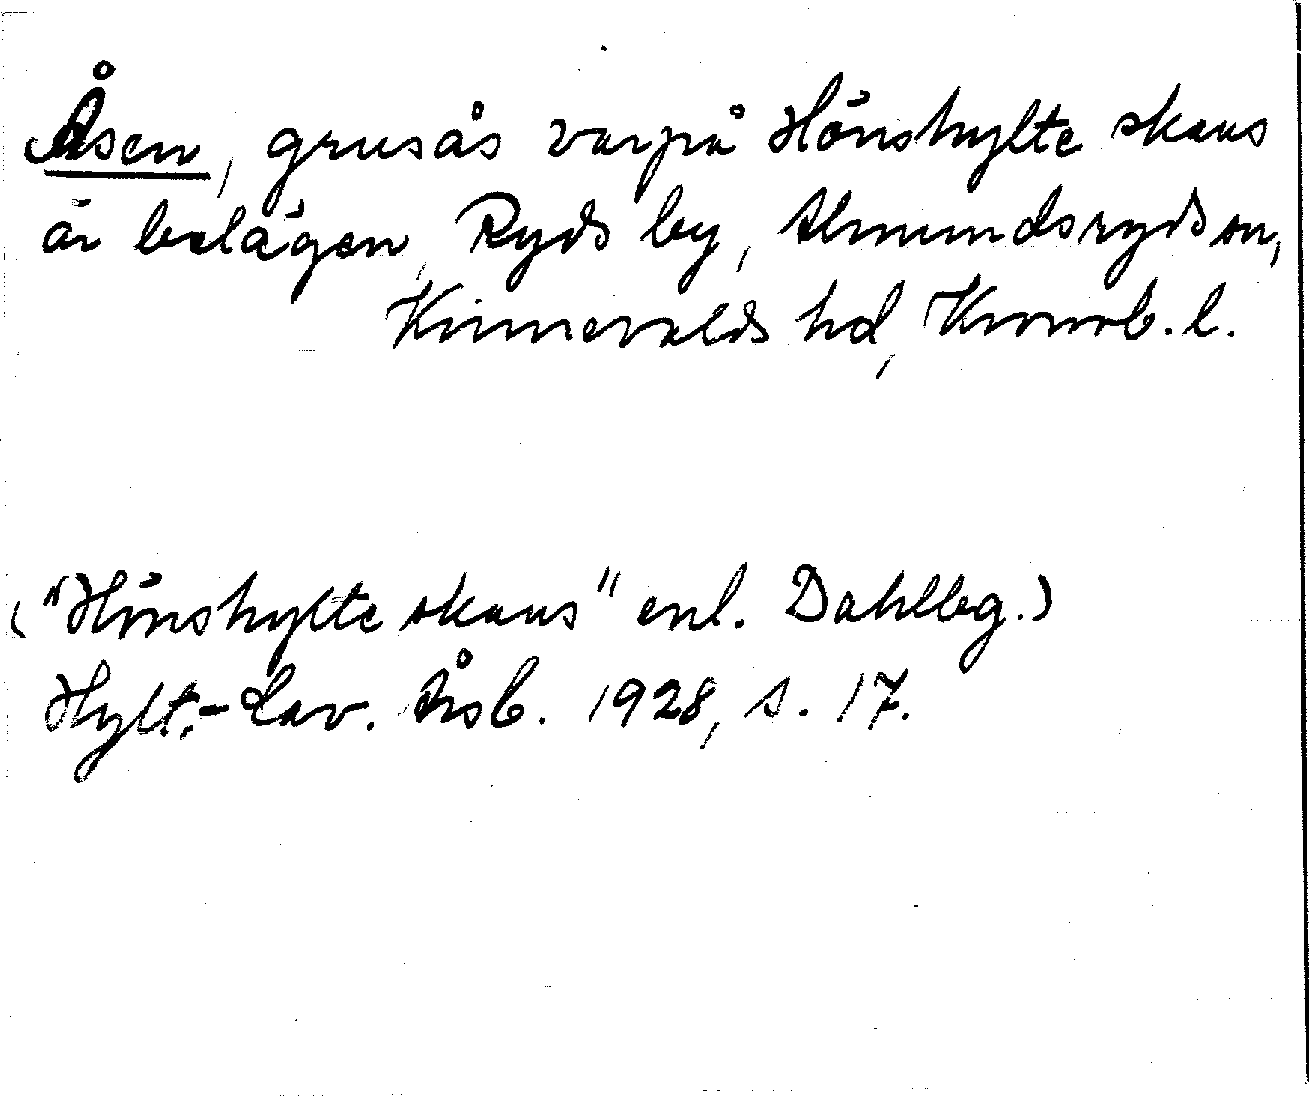 Åsen, grusås varpå Hönshylte skans
är belägen, Ryds by, Almundsryds sn,
Kinnevalds hd, Kronob. l.
("Hönshylte skans" enl. Dahlbg.)
Hylt.-Cav. Årsb. 1928, s. 17.